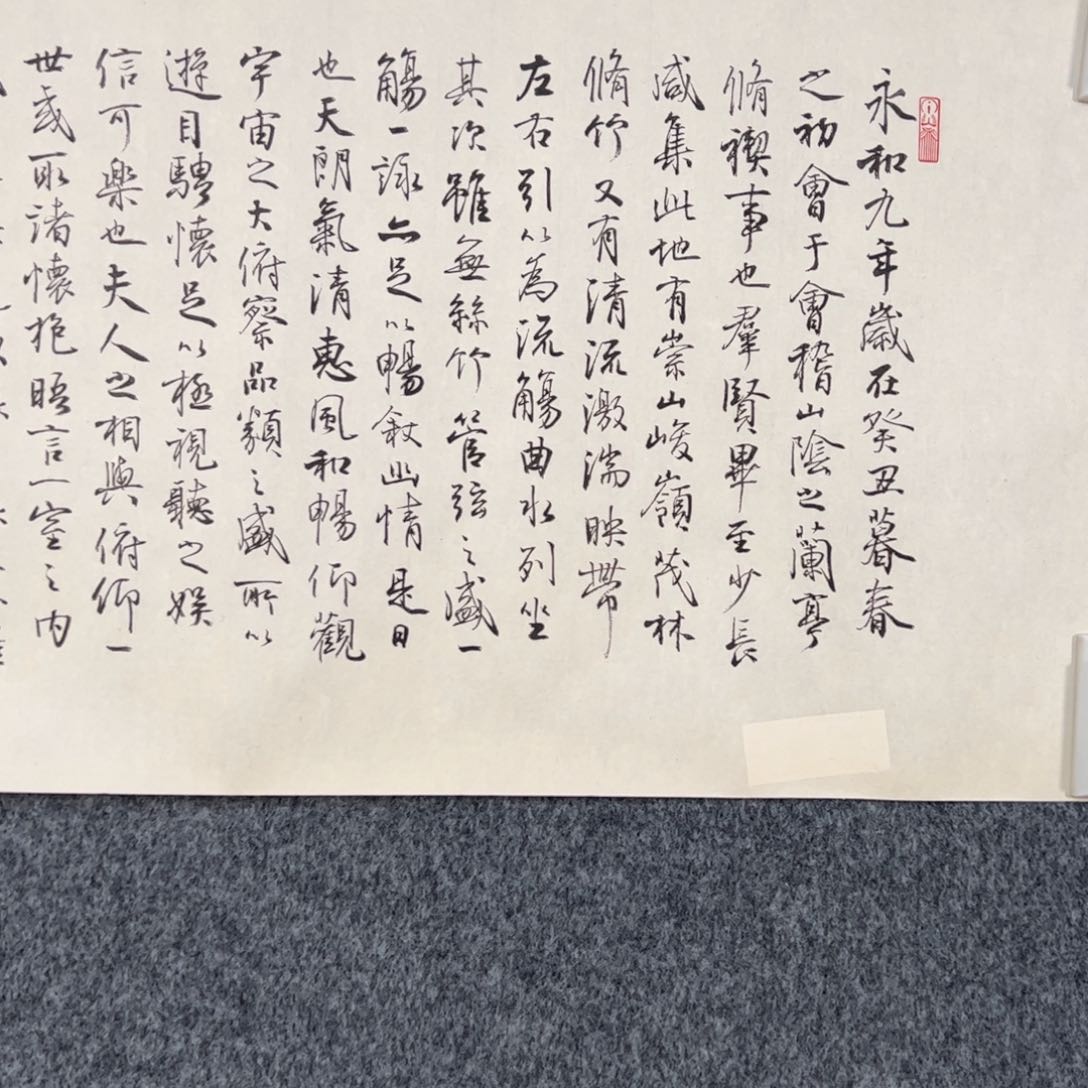 永和九年歲在癸丑暮春
之初會于會稽山陰之蘭亭
脩禊事也羣賢畢至少長
咸集此地有崇山峻嶺茂林
脩竹又有清流激湍映帶
左右引以為流觴曲水列坐
其次雖無絲竹管弦之盛一
觴一詠亦足以暢敘幽情是日
也天朗氣清惠風和暢仰觀
宇宙之大俯察品類之盛所以
遊目騁懷足以極視聽之娛
信可樂也夫人之相與俯仰一
世或取諸懷抱晤言一室之內